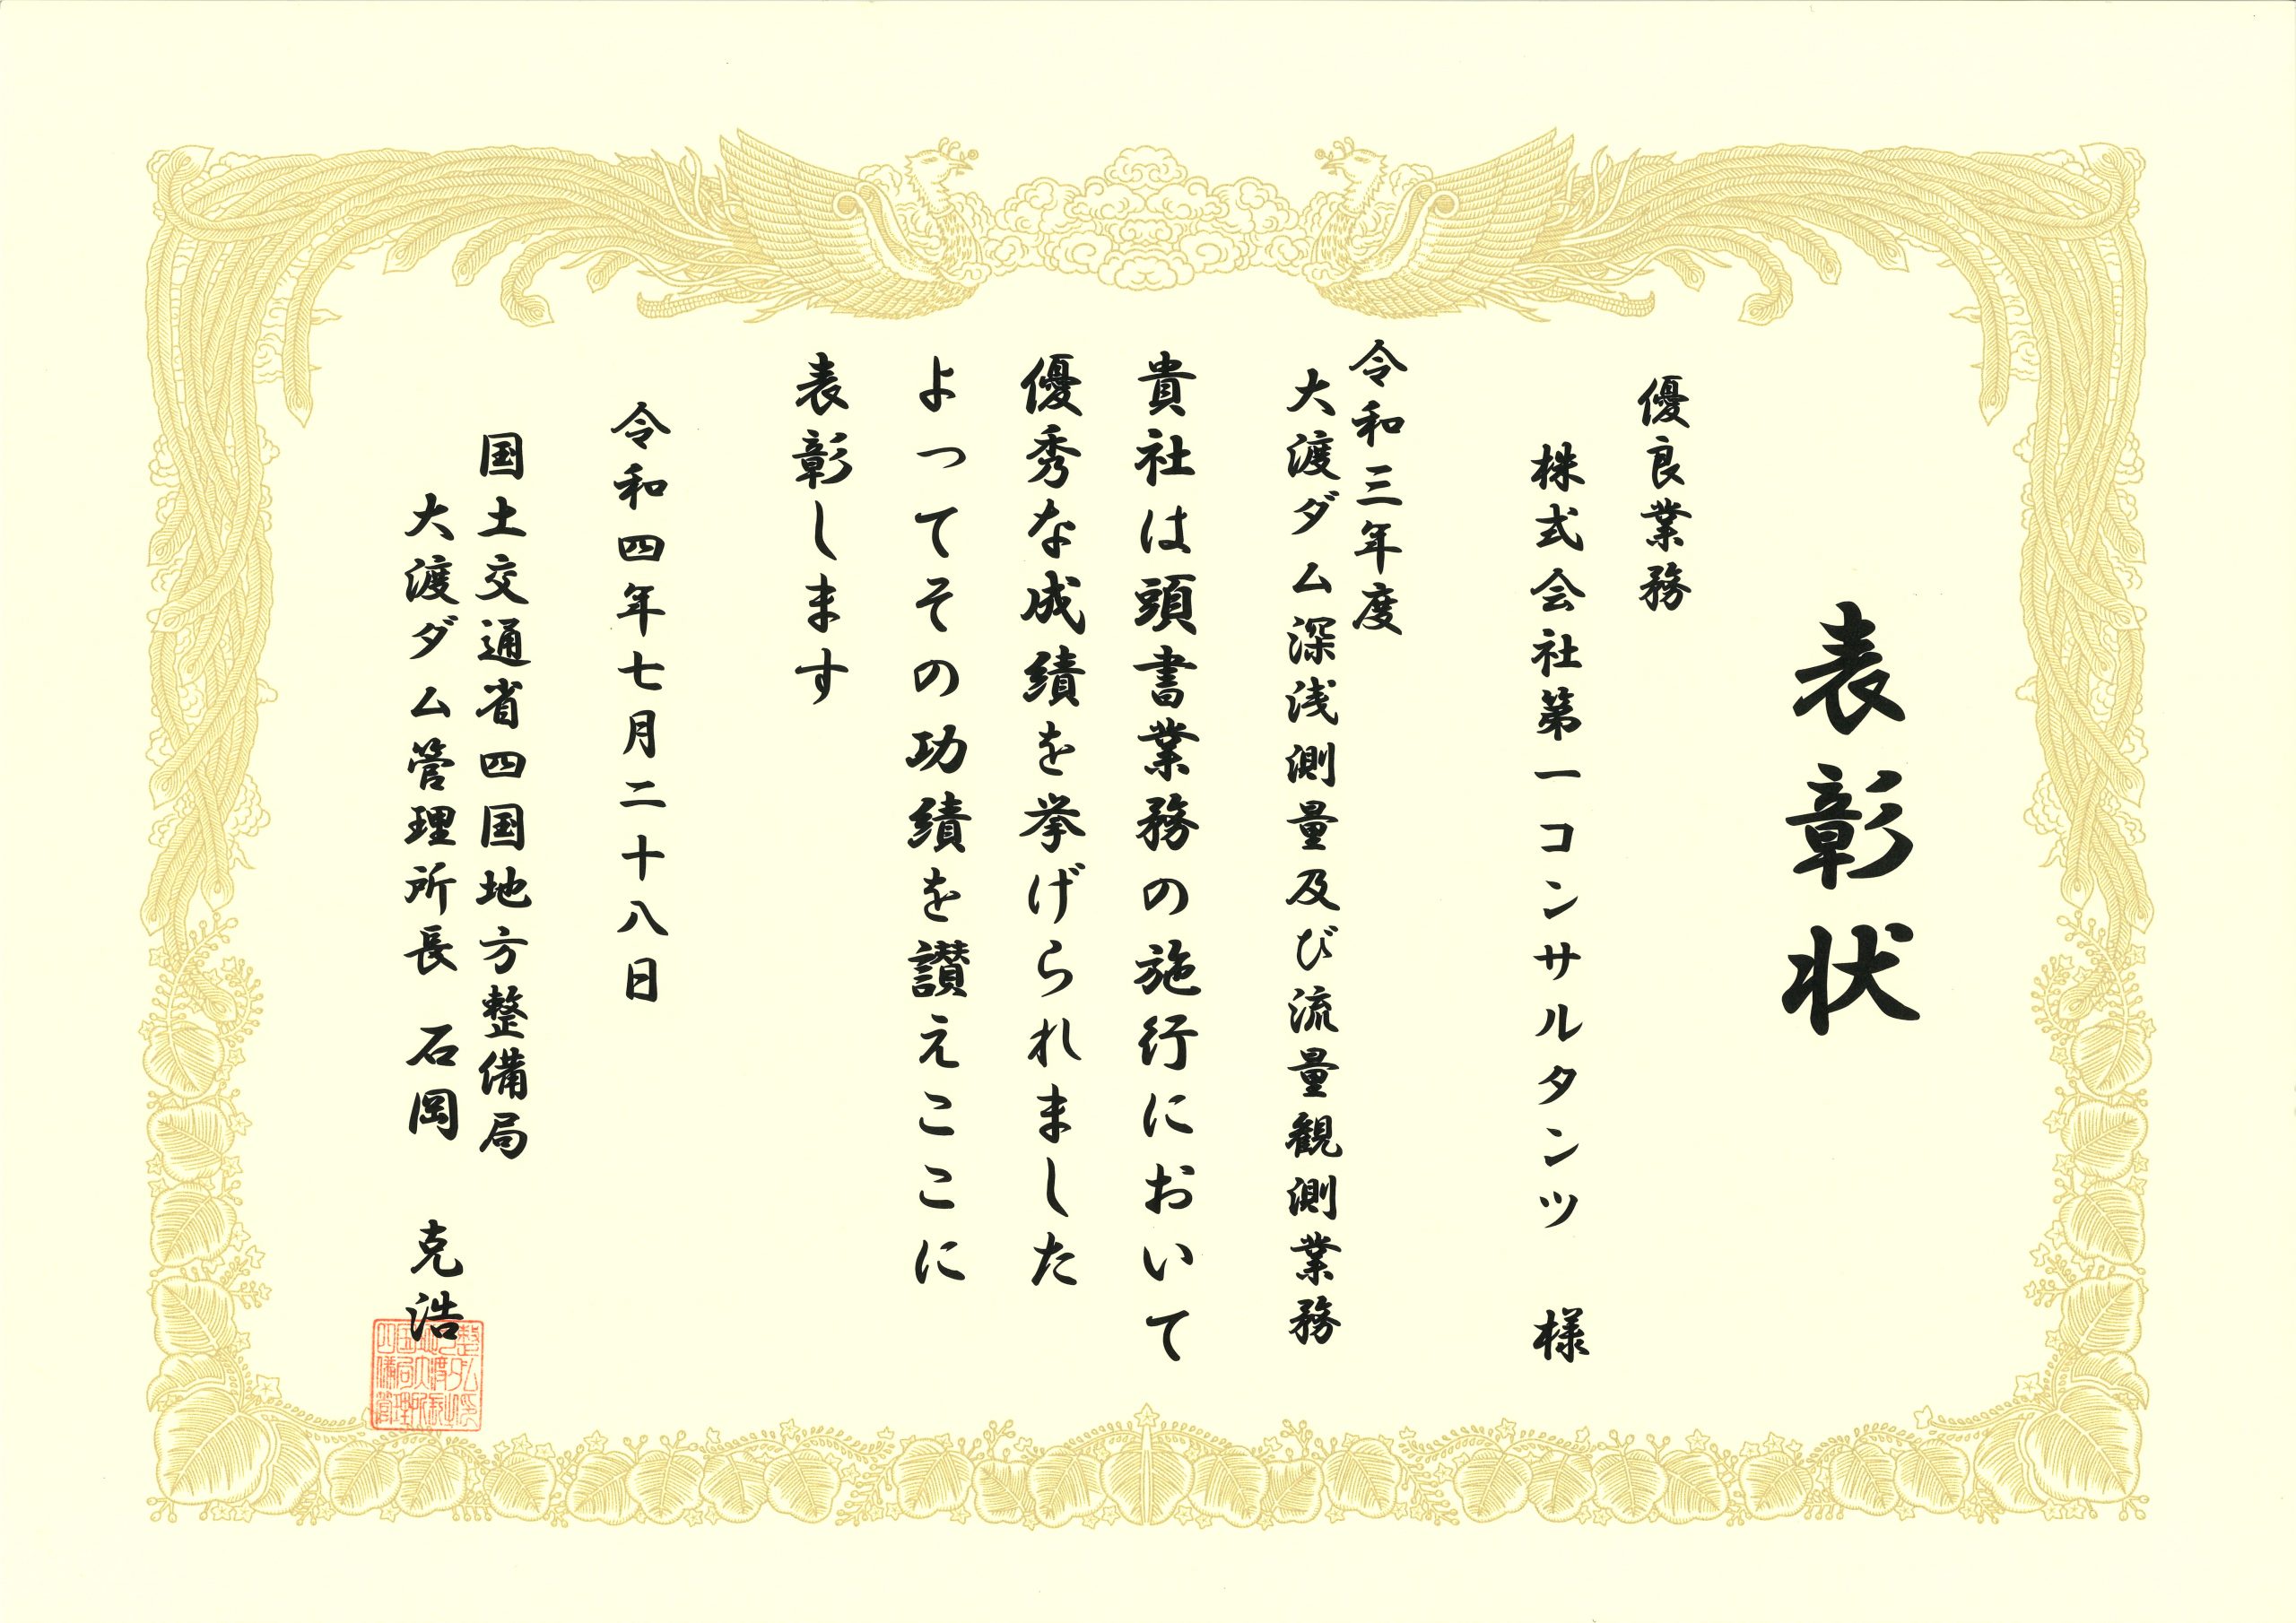 表彰状
優良業務
株式会社第一コンサルタンツ 様
令和三年度
大渡ダム深浅測量及び流量観測業務
貴社は頭書業務の施行において
優秀な成績を挙げられました
よってその功績を讃えここに
表彰します
令和四年七月二十八日
国土交通省四国地方整備局
大渡ダム管理所長 石岡 克浩